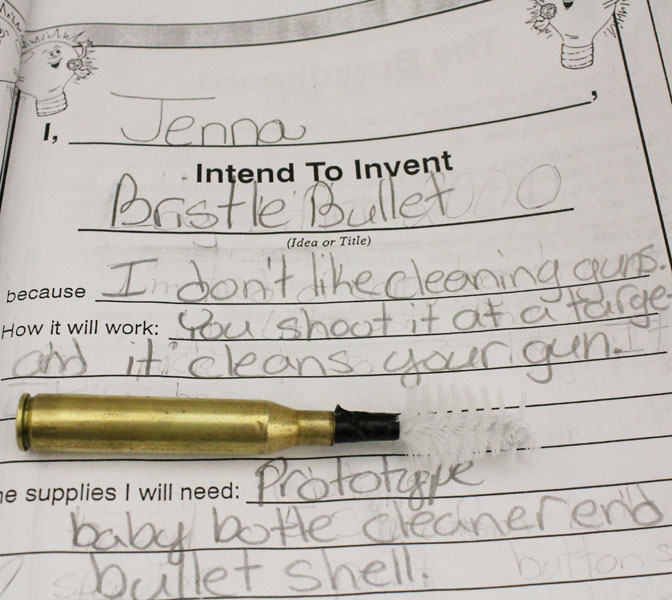 I, Jenna,
Intend To Invent
Bristle Bullet
(Idea or Title)
because I don't like cleaning guns.
How it will work: You shoot it at a targe
and it cleans your gun.
e supplies I will need: Prototype
baby bottle cleaner end
bullet shell.